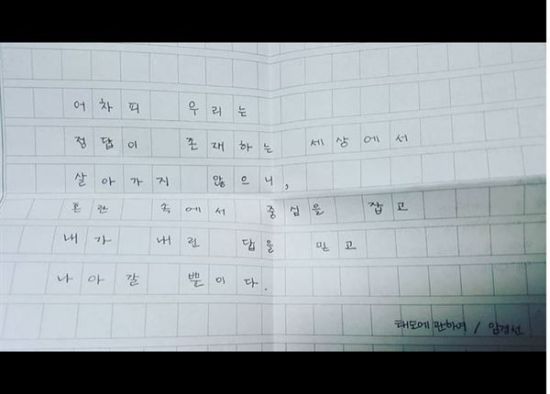 어차피 우리는
정답이 존재하는 세상에서
살아가지 않으니,
혼란 속에서 중심을 잡고
내가 내린 답을 믿고
나아갈 뿐이다.
태도에 관하여 / 임경선